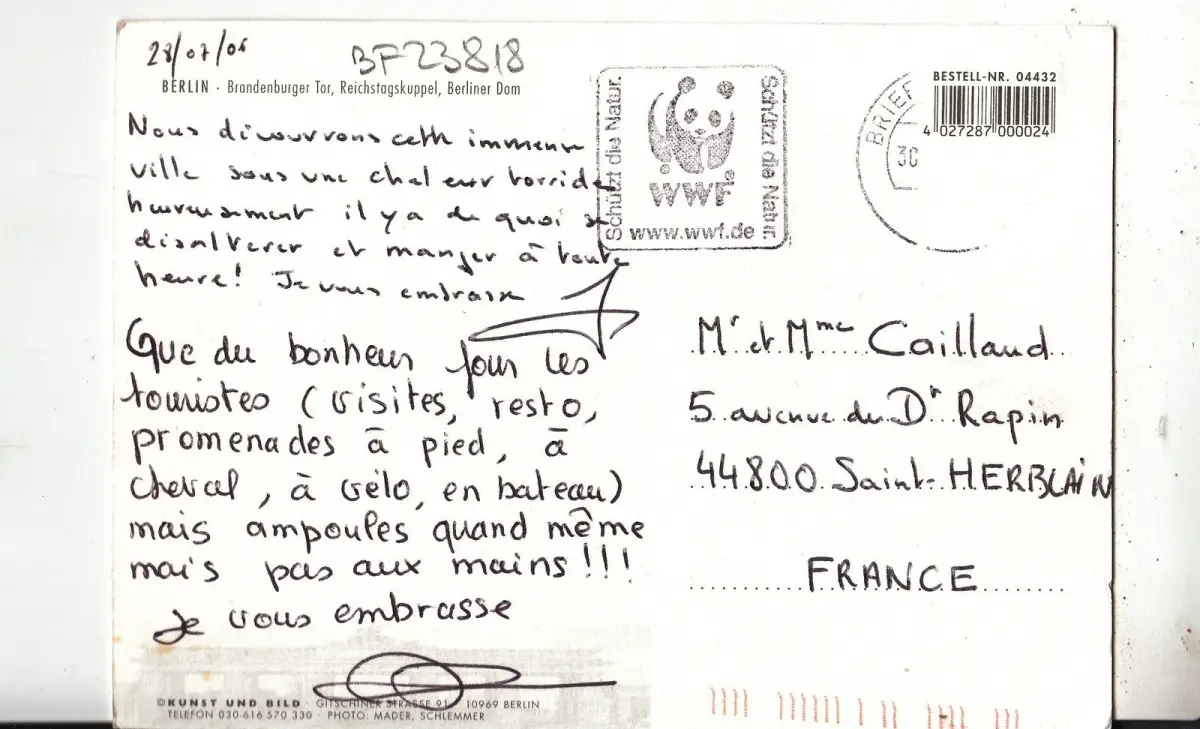 28/07/06
BF23818
BERLIN · Brandenburger Tor, Reichstagskuppel, Berliner Dom
Nous découvrons cette immense
ville sous une chaleur torride
heureusement il y a de quoi se
désaltérer et manger à toute
heure! Je vous embrasse
Que du bonheur pour les
touristes (visites, resto,
promenades à pied, à
cheval, à vélo, en bateau)
mais ampoules quand même
mais pas aux mains!!!
Je vous embrasse
©KUNST UND BILD · GITSCHINER STRASSE 91 · 10969 BERLIN
TELEFON 030-616 570 330 · PHOTO: MADER, SCHLEMMER
Schützt die Natur.
WWF
.de
Schützt die Natur.
www.wwf.de
BRIEF
30
BESTELL-NR. 04432
4 027287 000024
Mr et Mme Caillaud
5 avenue du Dr Rapin
44800 Saint-HERBLAIN
FRANCE